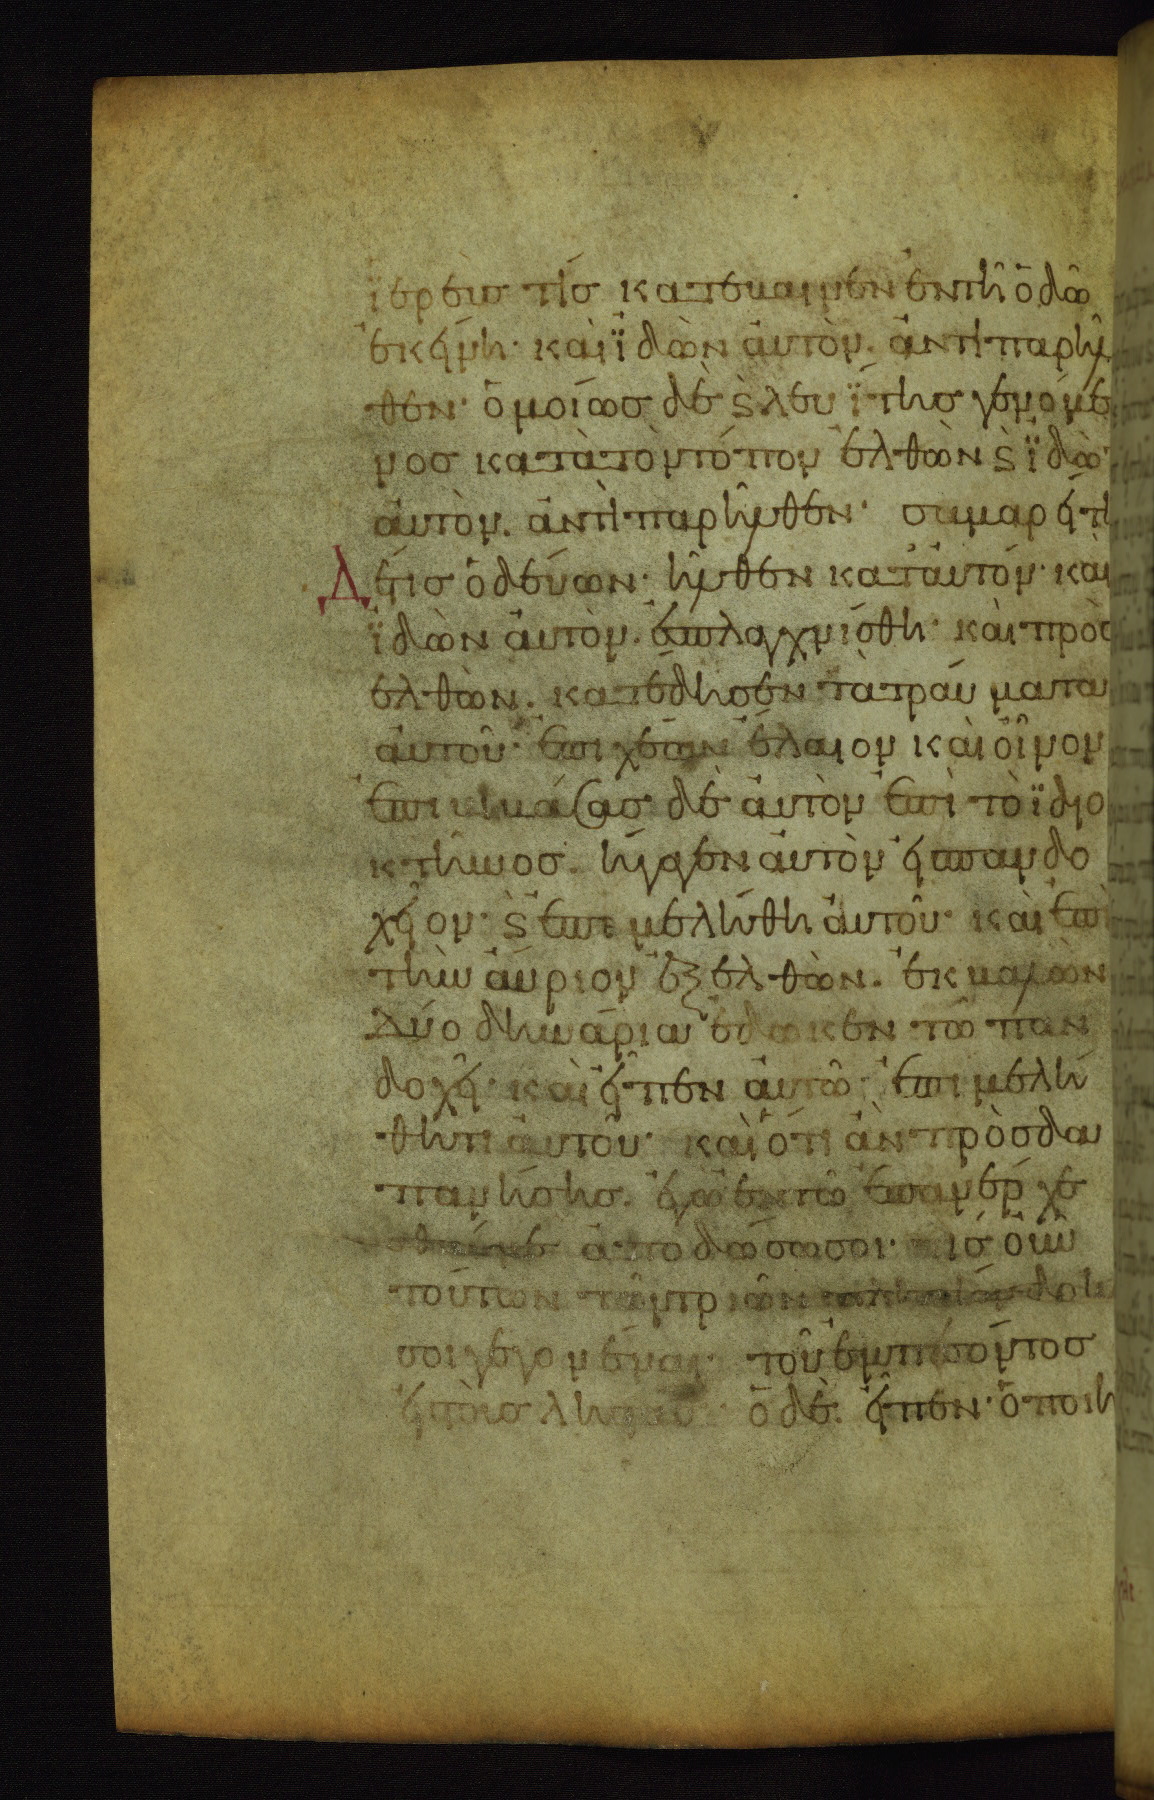 ϊερεὺσ τίσ κατέβαινεν ἐν τῆ ὁδῶ
ἐκείνη· καὶ ϊδὼν ἀυτὸν. ἀντιπαρῆλ
θεν· ὁμοίωσ δὲ ϗ λευΐτησ γενόμε
νοσ κατὰ τὸν τόπον ἐλθὼν ϗ ϊδὼν
ἀυτὸν. ἀντιπαρῆλθεν· σαμαρείτη
Δείσ ὁδέυων· ἦλθεν κατ' ἀυτόν· καὶ
ϊδὼν ἀυτὸν. ἐσπλαγχνίσθη· καὶ προσ
ελθὼν. κατέδησεν τὰ τράυματα
ἀυτοῦ· ἐπιχέων ἔλαιον καὶ οἶνον
ἐπιβιβάσασ δὲ ἀυτὸν ἐπὶ τὸ ϊδιο
κτῆνοσ. ἤγαγεν ἀυτὸν εἰσ πανδο
χεῖον· ϗ ἐπεμελήθη ἀυτοῦ· καὶ ἐπὶ
τὴν ἄυριον ἐξελθὼν. ἐκβαλὼν
Δύο δηνάρια ἔδωκεν τῶ παν
δοχεῖ· καὶ εἶπεν ἀυτῶ· ἐπιμελή
θητι ἀυτοῦ· καὶ ὅτι ἂν πρὸσδα
πανήσησ. ἐγὼ ἐν τῶ ἐπανέρχε
σθαί με ἀποδώσω σοι· τίσ οὖν
τούτων τῶν τριῶν πλησίον δοκεῖ
σοι γεγονέναι· τοῦ ἐμπεσόντοσ
εἰσ τοὺσ ληστάσ· ὁ δὲ. εἶπεν· ὁ ποιή